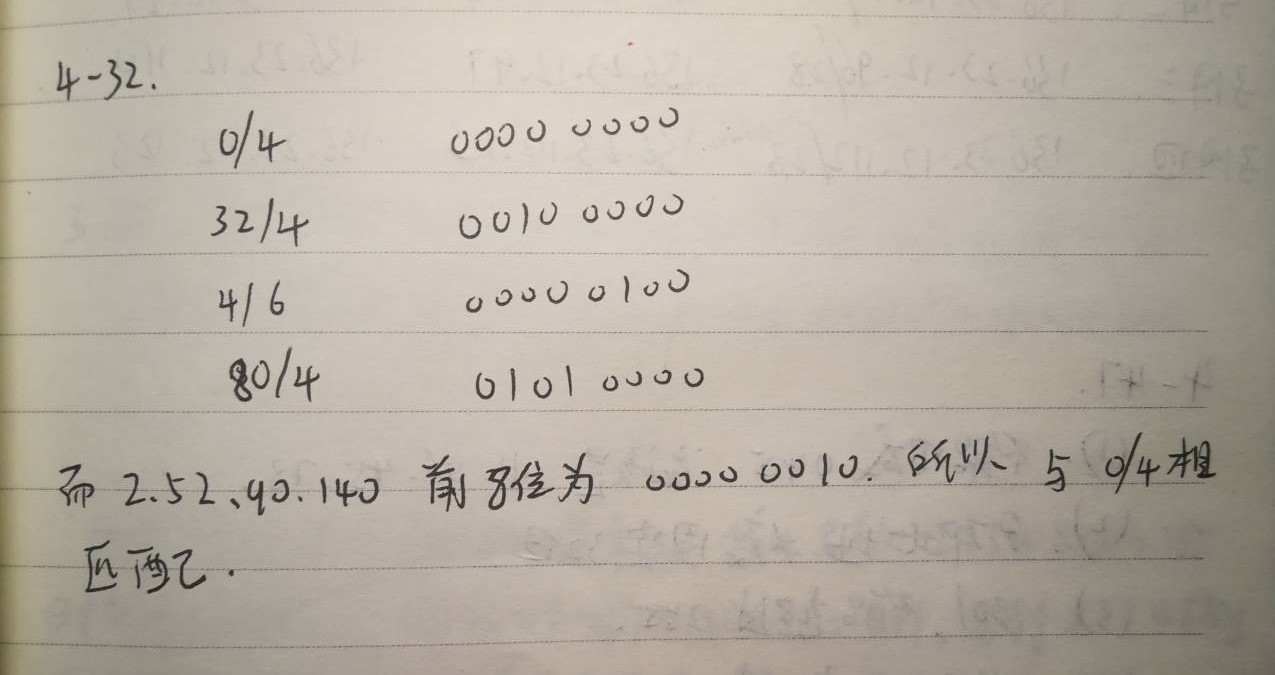 4-32.
0/4 0000 0000
32/4 0010 0000
4/6 0000 0100
80/4 0101 0000
而 2.52、90.140 前 8位为 0000 0010. 所以 与 0/4 相
匹配.